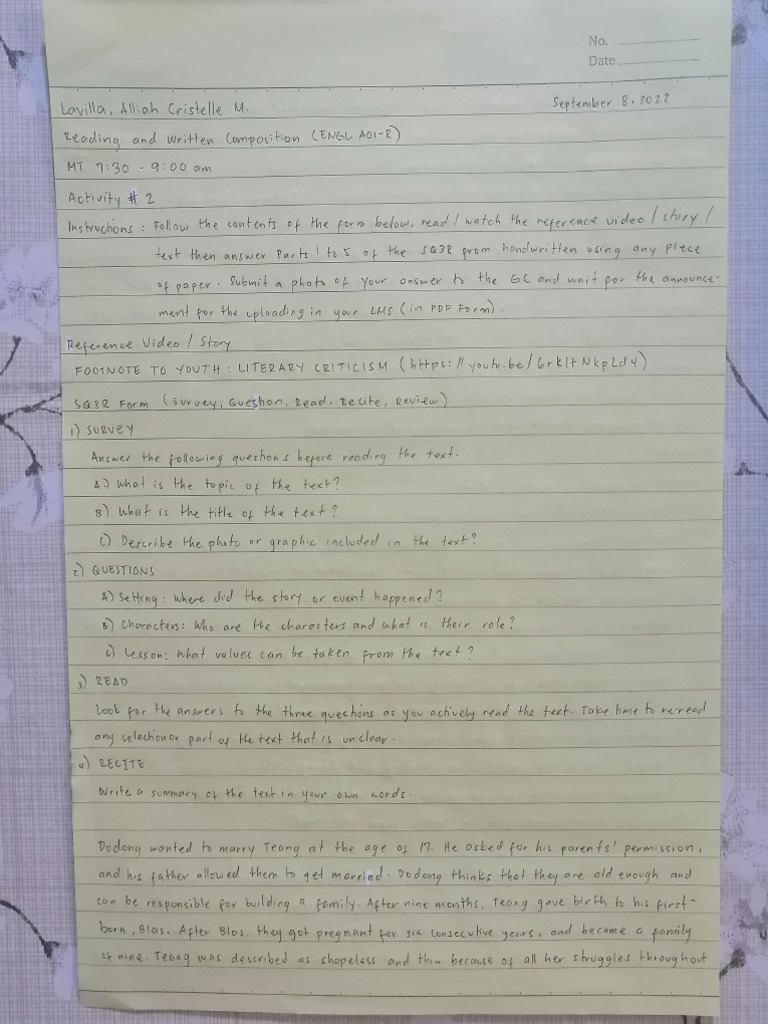 No.
Date
Lavilla, Alliah Cristelle M.
September 8, 2022
Reading and Written Composition (ENGL A01-R)
MT 7:30 - 9:00 am
Activity # 2
Instructions : Follow the contents of the form below, read / watch the reference video / story /
text then answer Parts 1 to 5 of the SQ3R from handwritten using any piece
of paper. Submit a photo of your answer to the GC and wait for the announce-
ment for the uploading in your LMS (in PDF Form).
Reference Video / Story
FOOTNOTE TO YOUTH : LITERARY CRITICISM (https://youtu.be/6rkltNkpLd4)
SQ3R Form (Survey, Question, Read, Recite, Review)
1) SURVEY
Answer the following questions before reading the text.
A) What is the topic of the text?
B) What is the title of the text?
C) Describe the photo or graphic included in the text?
2) QUESTIONS
A) Setting: Where did the story or event happened?
B) Characters: Who are the characters and what is their role?
C) Lesson: What values can be taken from the text?
3) READ
Look for the answers to the three questions as you actively read the text. Take time to re-read
any selection or part of the text that is unclear.
4) RECITE
Write a summary of the text in your own words.
Dodong wanted to marry Teang at the age of 17. He asked for his parents' permission,
and his father allowed them to get married. Dodong thinks that they are old enough and
can be responsible for building a family. After nine months, Teang gave birth to his first-
born, Blas. After Blas, they got pregnant for six consecutive years, and became a family
of nine. Teang was described as shapeless and thin because of all her struggles throughout